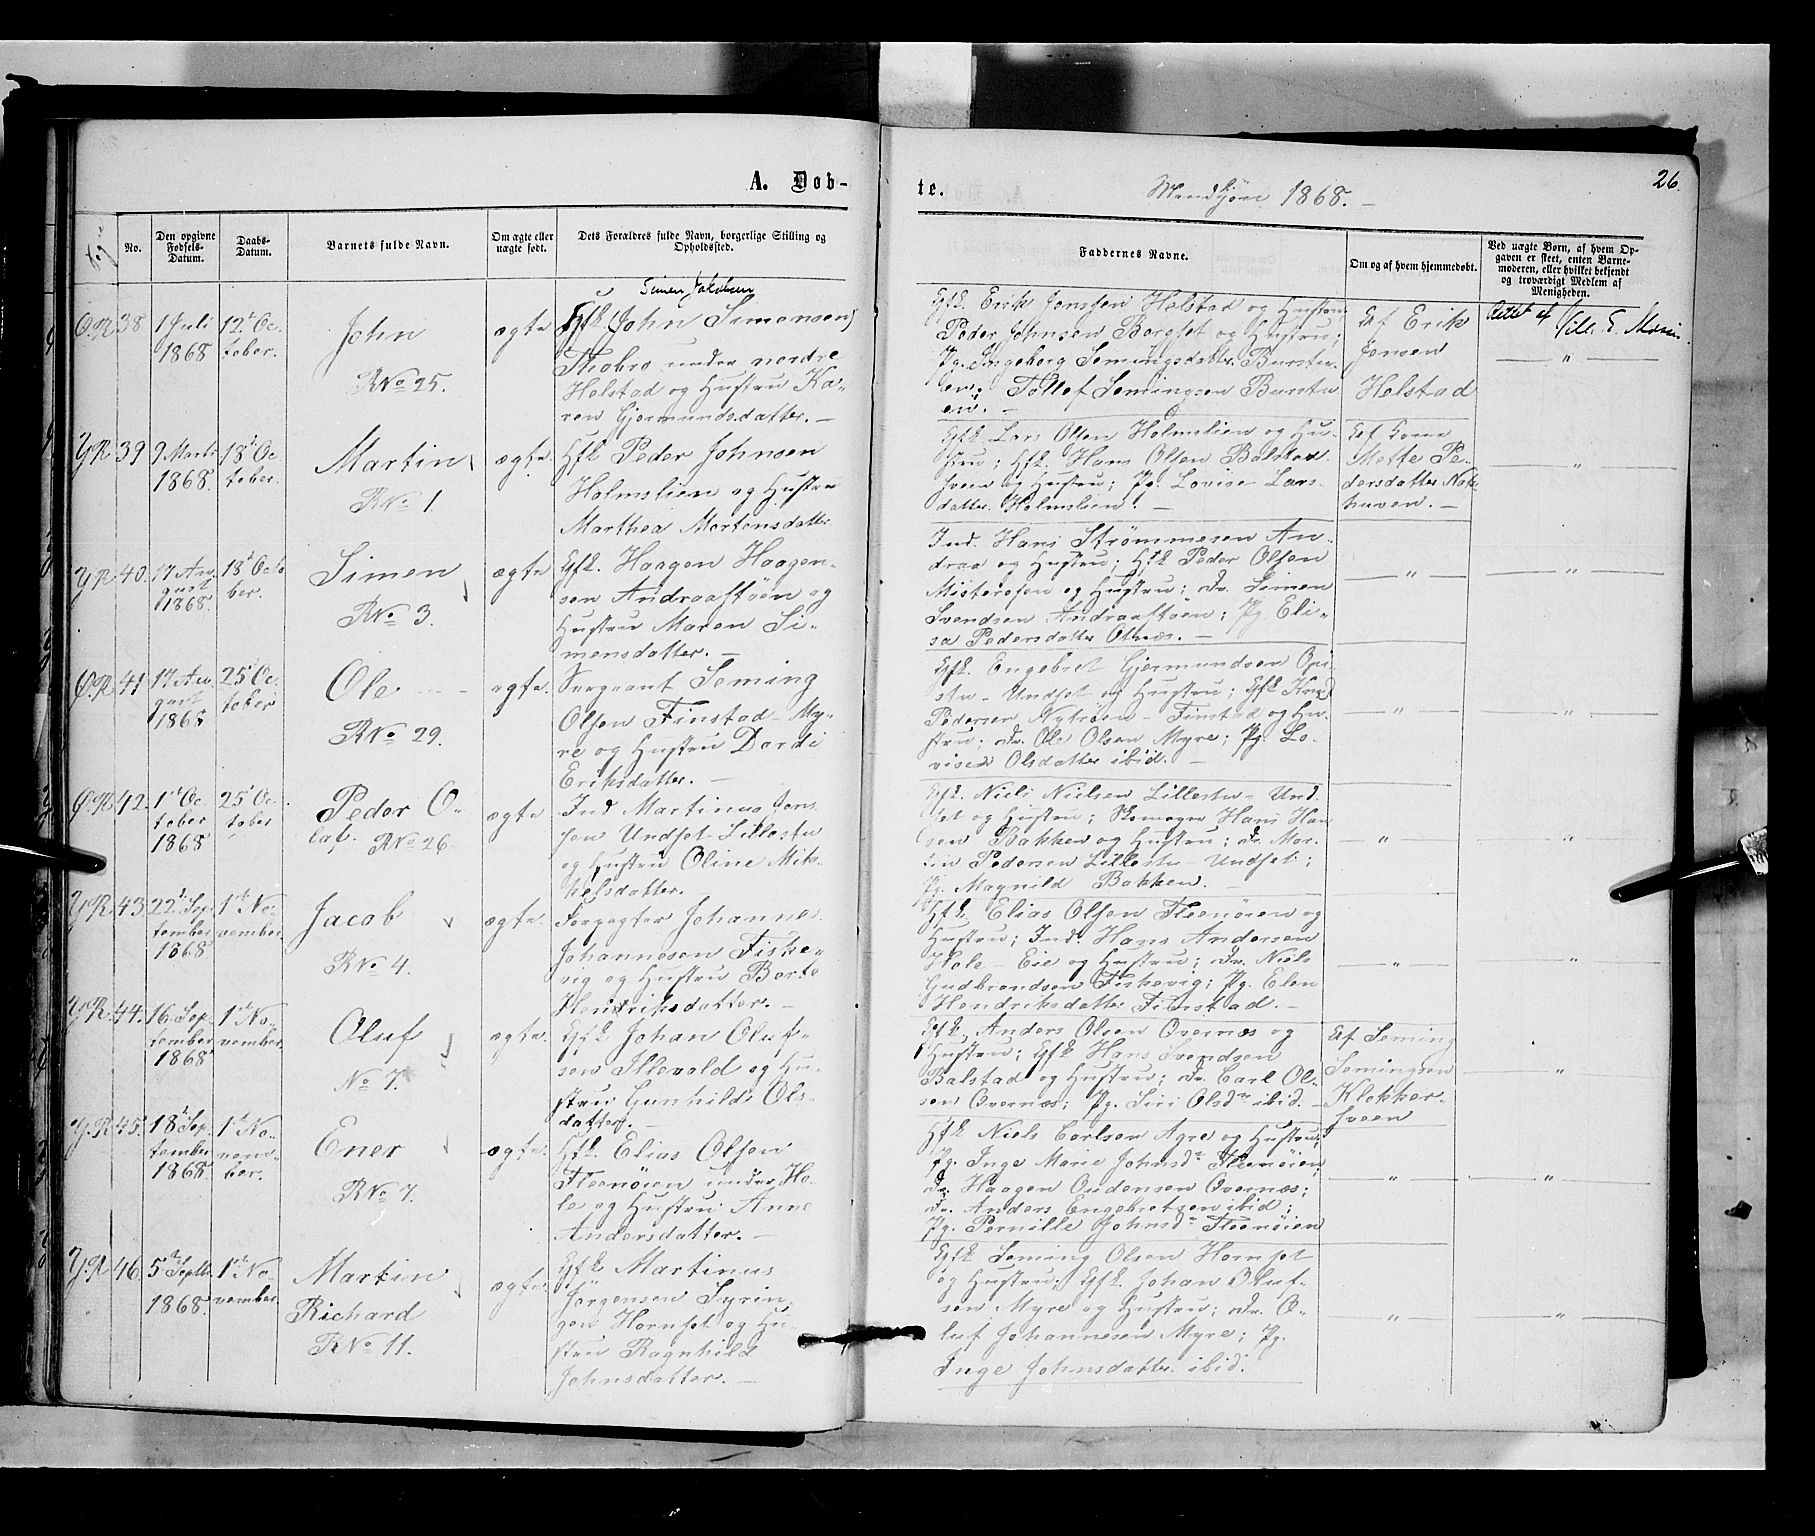 A. Døb-
te.
Mandkjøn 1868.
26.
No.
Den opgivne
Fødsels-
Datum.
Daabs-
Datum.
Barnets fulde Navn.
Om ægte eller
uægte født.
Dets Forældres fulde Navn, borgerlige Stilling og
Opholdssted.
Faddernes Navne.
Om og af hvem hjemmedøbt.
Ved uægte Børn, af hvem Op-
gaven er skeet, enten Barne-
moderen, eller hvilket bekjendt
og troværdigt Medlem af
Menigheden.
Ø.R. 38
1 Juli
1868
12t Oc-
tober.
John
RNo 25.
ægte
Simen Jakobsen
Gfk (John Simensen)
Thobro under nordre
Holstad og Hustru Ka-
ren Gjermundsdatter. —
Gfk. Erik Jonsen Holstad og Hustru
Peder Johnsen Borgset og Hustru;
Pg. Ingeborg Semingsdatter Burstu-
en; Tollef Semingsen Burstu
en. —
Af Erik
Jonsen
Holstad
Rettet af
— " —
Y.R. 39
9 Marts
1868.
18t Oc
tober.
Martin
RNo 1.
ægte.
Gfk Peder Johnsen
Holmslien og Hustru
Marthea Mortensdatter
Gfk. Lars Olsen Holmslien og Hu-
stru; Gfk. Hans Olsen Balstad-
sveen og Hustru; Pg. Lovise Lars-
datter Holmslien. —
Mette Pe-
dersdatter
huven. —
— " —
Y.R. 40.
17 Au-
gust
1868.
18t Octo
ber.
Simen
RNo 3.
ægte
Gfk. Haagen Haagen-
sen Andraastøen og
Hustru Maren Si-
mensdatter. —
Ind. Hans Strømmesen An-
draa og Hustru; Gfk Peder Olsen
Misterosen og Hustru; Dr. Simen
Svendsen Andraastøen; Pg. Eli-
sa Pedersdatter Otnæs. —
— " —
— " —
Ø.R. 41
17 Au-
gust
1868
25t Oc-
tober
Ole
RNo 29.
ægte.
Sergeant Seming
Olsen Finstad-My-
re og Hustru Dordi
Eriksdatter. —
Gfk. Engebret Gjermundsen Opi-
stu-Undset og Hustru; Gfk Knud
Pedersen Nytrøen-Finstad og Hu-
stru; Dr. Ole Olsen Myre; Pg. Lo-
vise Olsdatter ibid. —
— " —
— " —
Ø.R. 42.
1ste Oc-
tober
1868
25t Oc-
tober
Peder O-
laf. RNo 26
ægte
Ind Martinus Jons-
sen Undset Lillestu
og Hustru Oline Mik-
kelsdatter. —
Gfk. Niels Nielsen Lillestu-Und-
set og Hustru; Skomager Hans Han-
sen Bakken og Hustru; Dr. Mar-
tin Pedersen Lillestu-Undset;
Pg. Magnild Bakken. —
— " —
— " —
Y.R. 43.
22d Sep-
tember
1868
1ste No-
vember.
Jacob
RNo 4.
ægte.
Forpagter Johannes
Johannesen Fiske-
vig og Hustru Berte
Hendriksdatter. —
Gfk. Elias Olsen Fleenøien og
Hustru; Ind. Hans Andersen
Hole-Eie og Hustru; Dr. Niels
Gudbrandsen Fiskevig; Pg. Elen
Hendriksdatter Finstad. —
— " —
— " —
Y.R. 44.
16 Sep-
tember
1868
1ste No-
vember.
Oluf
No 7.
ægte.
Gfk Johan Oluf-
sen Illevold og Hu-
stru Gunhilde Ols-
datter. —
Gfk. Anders Olsen Overnæs og
Hustru; Gfk Hans Svendsen
Balstad og Hustru; Dr. Carl Ol-
sen Overnæs; Pg. Siri Olsdr ibid. —
Af Seming
Semingsen
Klokker-
sveen
— " —
Y.R. 45.
18t Sep-
tember
1868
1ste No-
vem-
ber.
Ener
RNo 7.
ægte.
Gfk. Elias Olsen
Fleenøien under Ho-
le og Hustru Anne
Andersdatter. —
Gfk Niels Carlsen Agre og Hustru;
Pg. Inge Marie Johnsdr Fleenøien;
Dr. Haagen Oudensen Overnæs;
Dr. Anders Engebretsen ibid;
Pg. Pernille Johnsdr Fleenøien
— " —
— " —
Y.R. 46.
5te Septb.
1868.
1ste No
vember.
Martin
Richard
RNo 11.
ægte.
Gfk Martinus
Jørgensen Syrin-
gen Hornset og Hu-
stru Ragnhild
Johnsdatter. —
Gfk Seming Olsen Hornset
og Hustru; Gfk. Johan Oluf-
sen Myre og Hustru; Dr. O-
luf Johannesen Myre; Pg.
Inge Johnsdatter ibid.
— " —
— " —